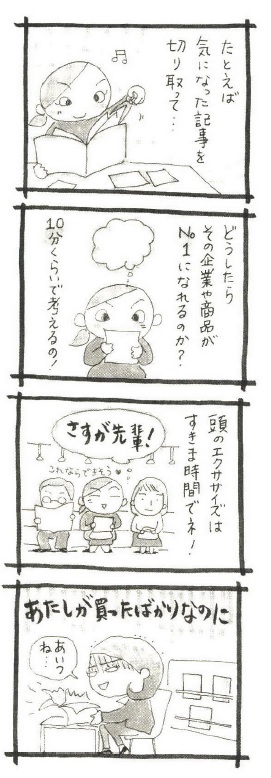 たとえば
気になった記事を
切り取って…
どうしたら
その企業や商品が
No.1になれるのか？
10分くらいで考えるの！
頭のエクササイズは
すきま時間でネ！
さすが先輩！
これならできそう♥
あたしが買ったばかりなのに
あいつ
ね…